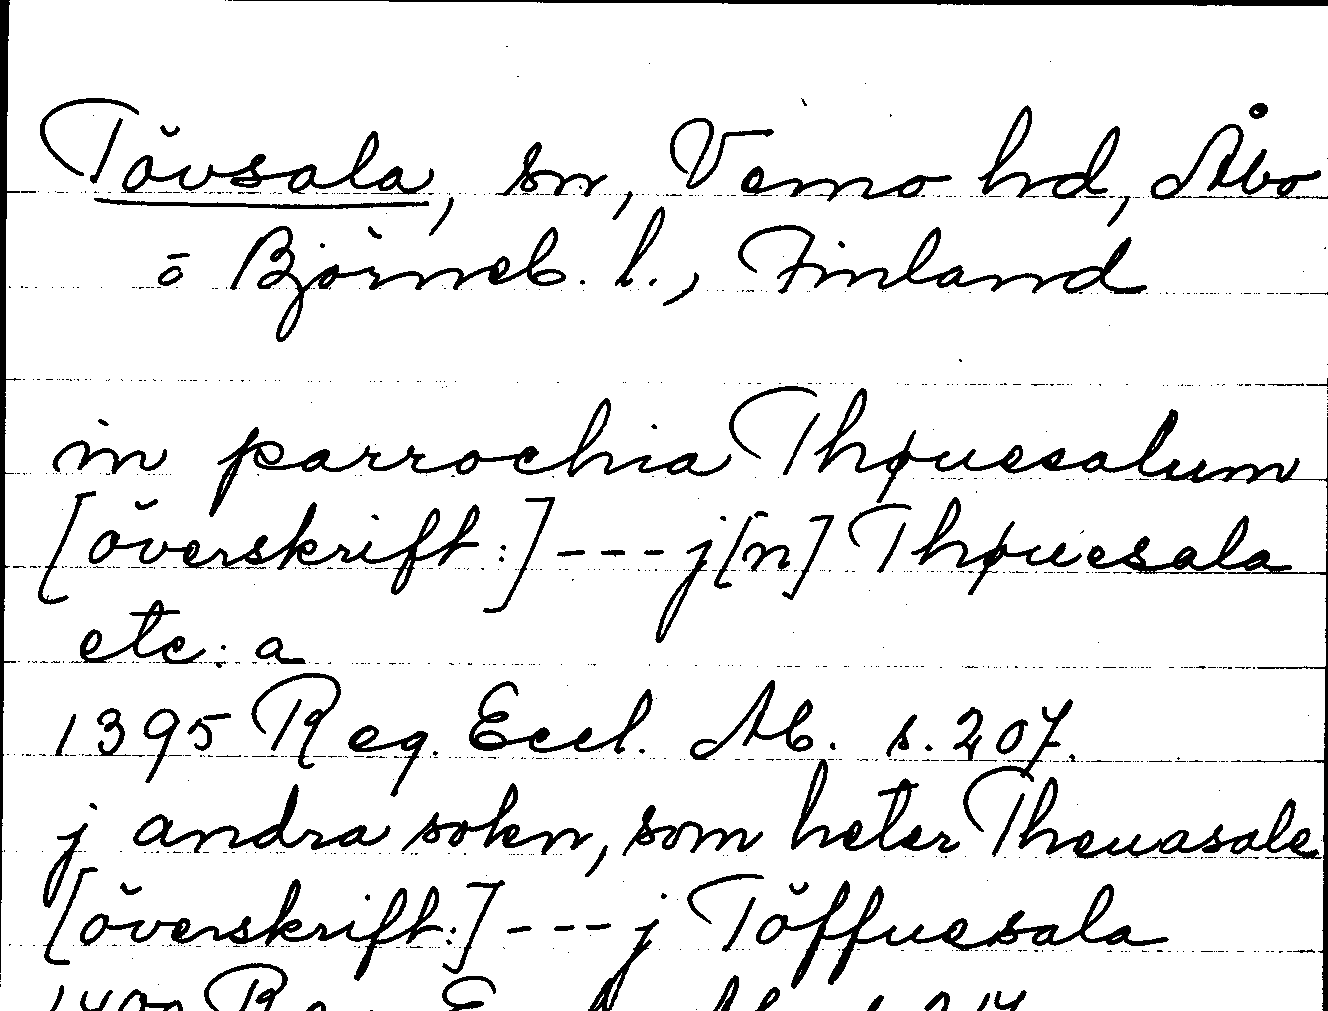 Tövsala, sn, Vemo hd, Åbo
o Björneb. l., Finland
in parrochia Thøuesalum
[överskrift:] --- j[n] Thøuesala
etc: a
1395 Reg. Eccl. Ab. s. 207.
j andra sokn, som heter Theuasale
[överskrift:] --- j Töffuesala
Reg. Eccl. Ab. s.